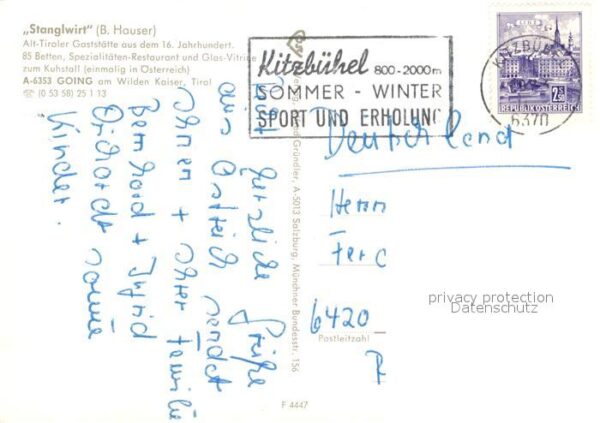 „Stanglwirt“ (B. Hauser)
Alt-Tiroler Gaststätte aus dem 16. Jahrhundert.
85 Betten, Spezialitäten-Restaurant und Glas-Vitrine
zum Kuhstall (einmalig in Österreich)
A-6353 GOING am Wilden Kaiser, Tirol
☏ (0 53 58) 25 1 13
Kitzbühel 800-2000m
SOMMER - WINTER
SPORT UND ERHOLUNG
KITZBÜHEL
6370
LINZ
2S
REPUBLIK ÖSTERREICH
herzliche Grüße
aus Östreich sendet
Ihnen + Ihrer Familie
Bernhard + Ingrid
sowie
Kinder.
und Gründler, A-5013 Salzburg, Münchner Bundesstr. 156
Deutschland
Herrn
Ferd
6420
Postleitzahl
F 4447
privacy protection
Datenschutz